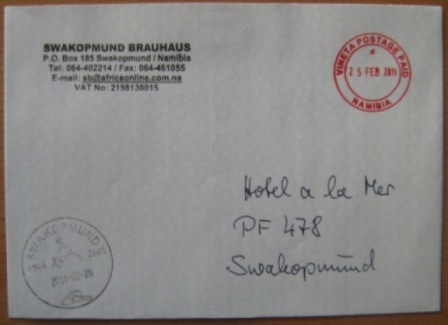 SWAKOPMUND BRAUHAUS
P.O. Box 185 Swakopmund / Namibia
Tel: 064-402214 / Fax: 064-461055
E-mail: sb@africaonline.com.na
VAT No: 2198130015
VINETA POSTAGE PAID
25 FEB 2011
NAMIBIA
Hotel a la Mer
PF 478
Swakopmund
SWAKOPMUND
2011-02-25